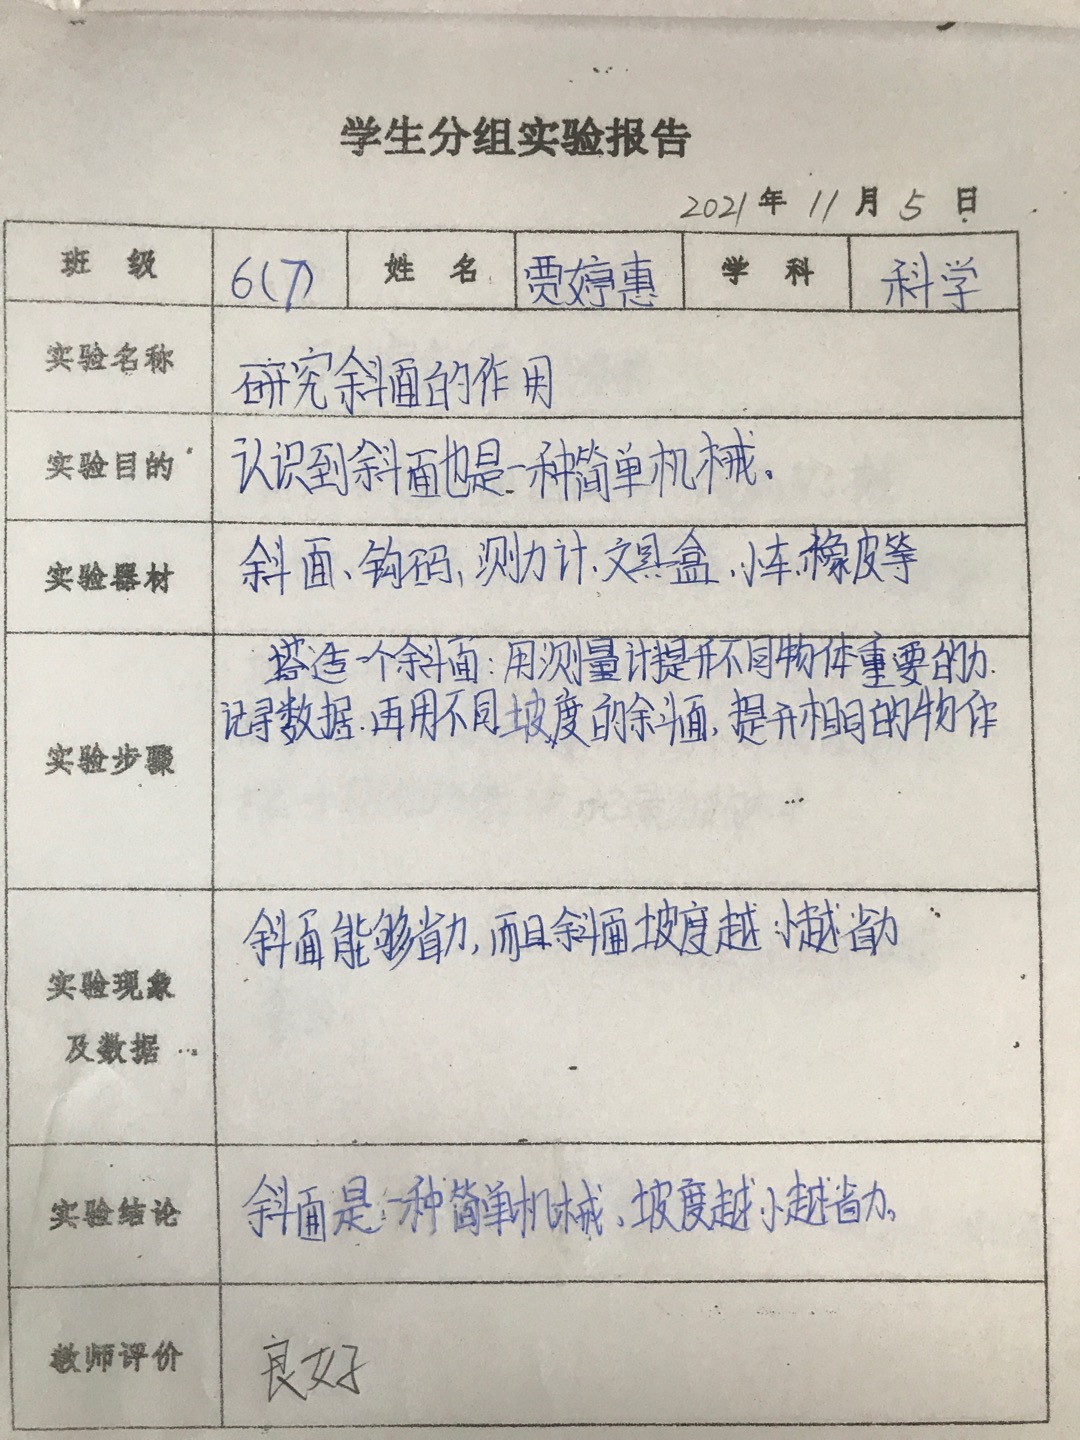 学生分组实验报告
2021年11月5日
班级 6(7) 姓名 贾婷惠 学科 科学
实验名称 研究斜面的作用
实验目的 认识到斜面也是一种简单机械。
实验器材 斜面、钩码、测力计、文具盒、小车、橡皮等
搭造一个斜面:用测量计提升不同物体重要的力.
记录数据.再用不同坡度的斜面,提升相同的物体
实验步骤
斜面能够省力,而且斜面坡度越小越省力
实验现象
及数据
实验结论 斜面是一种简单机械、坡度越小越省力。
教师评价 良好